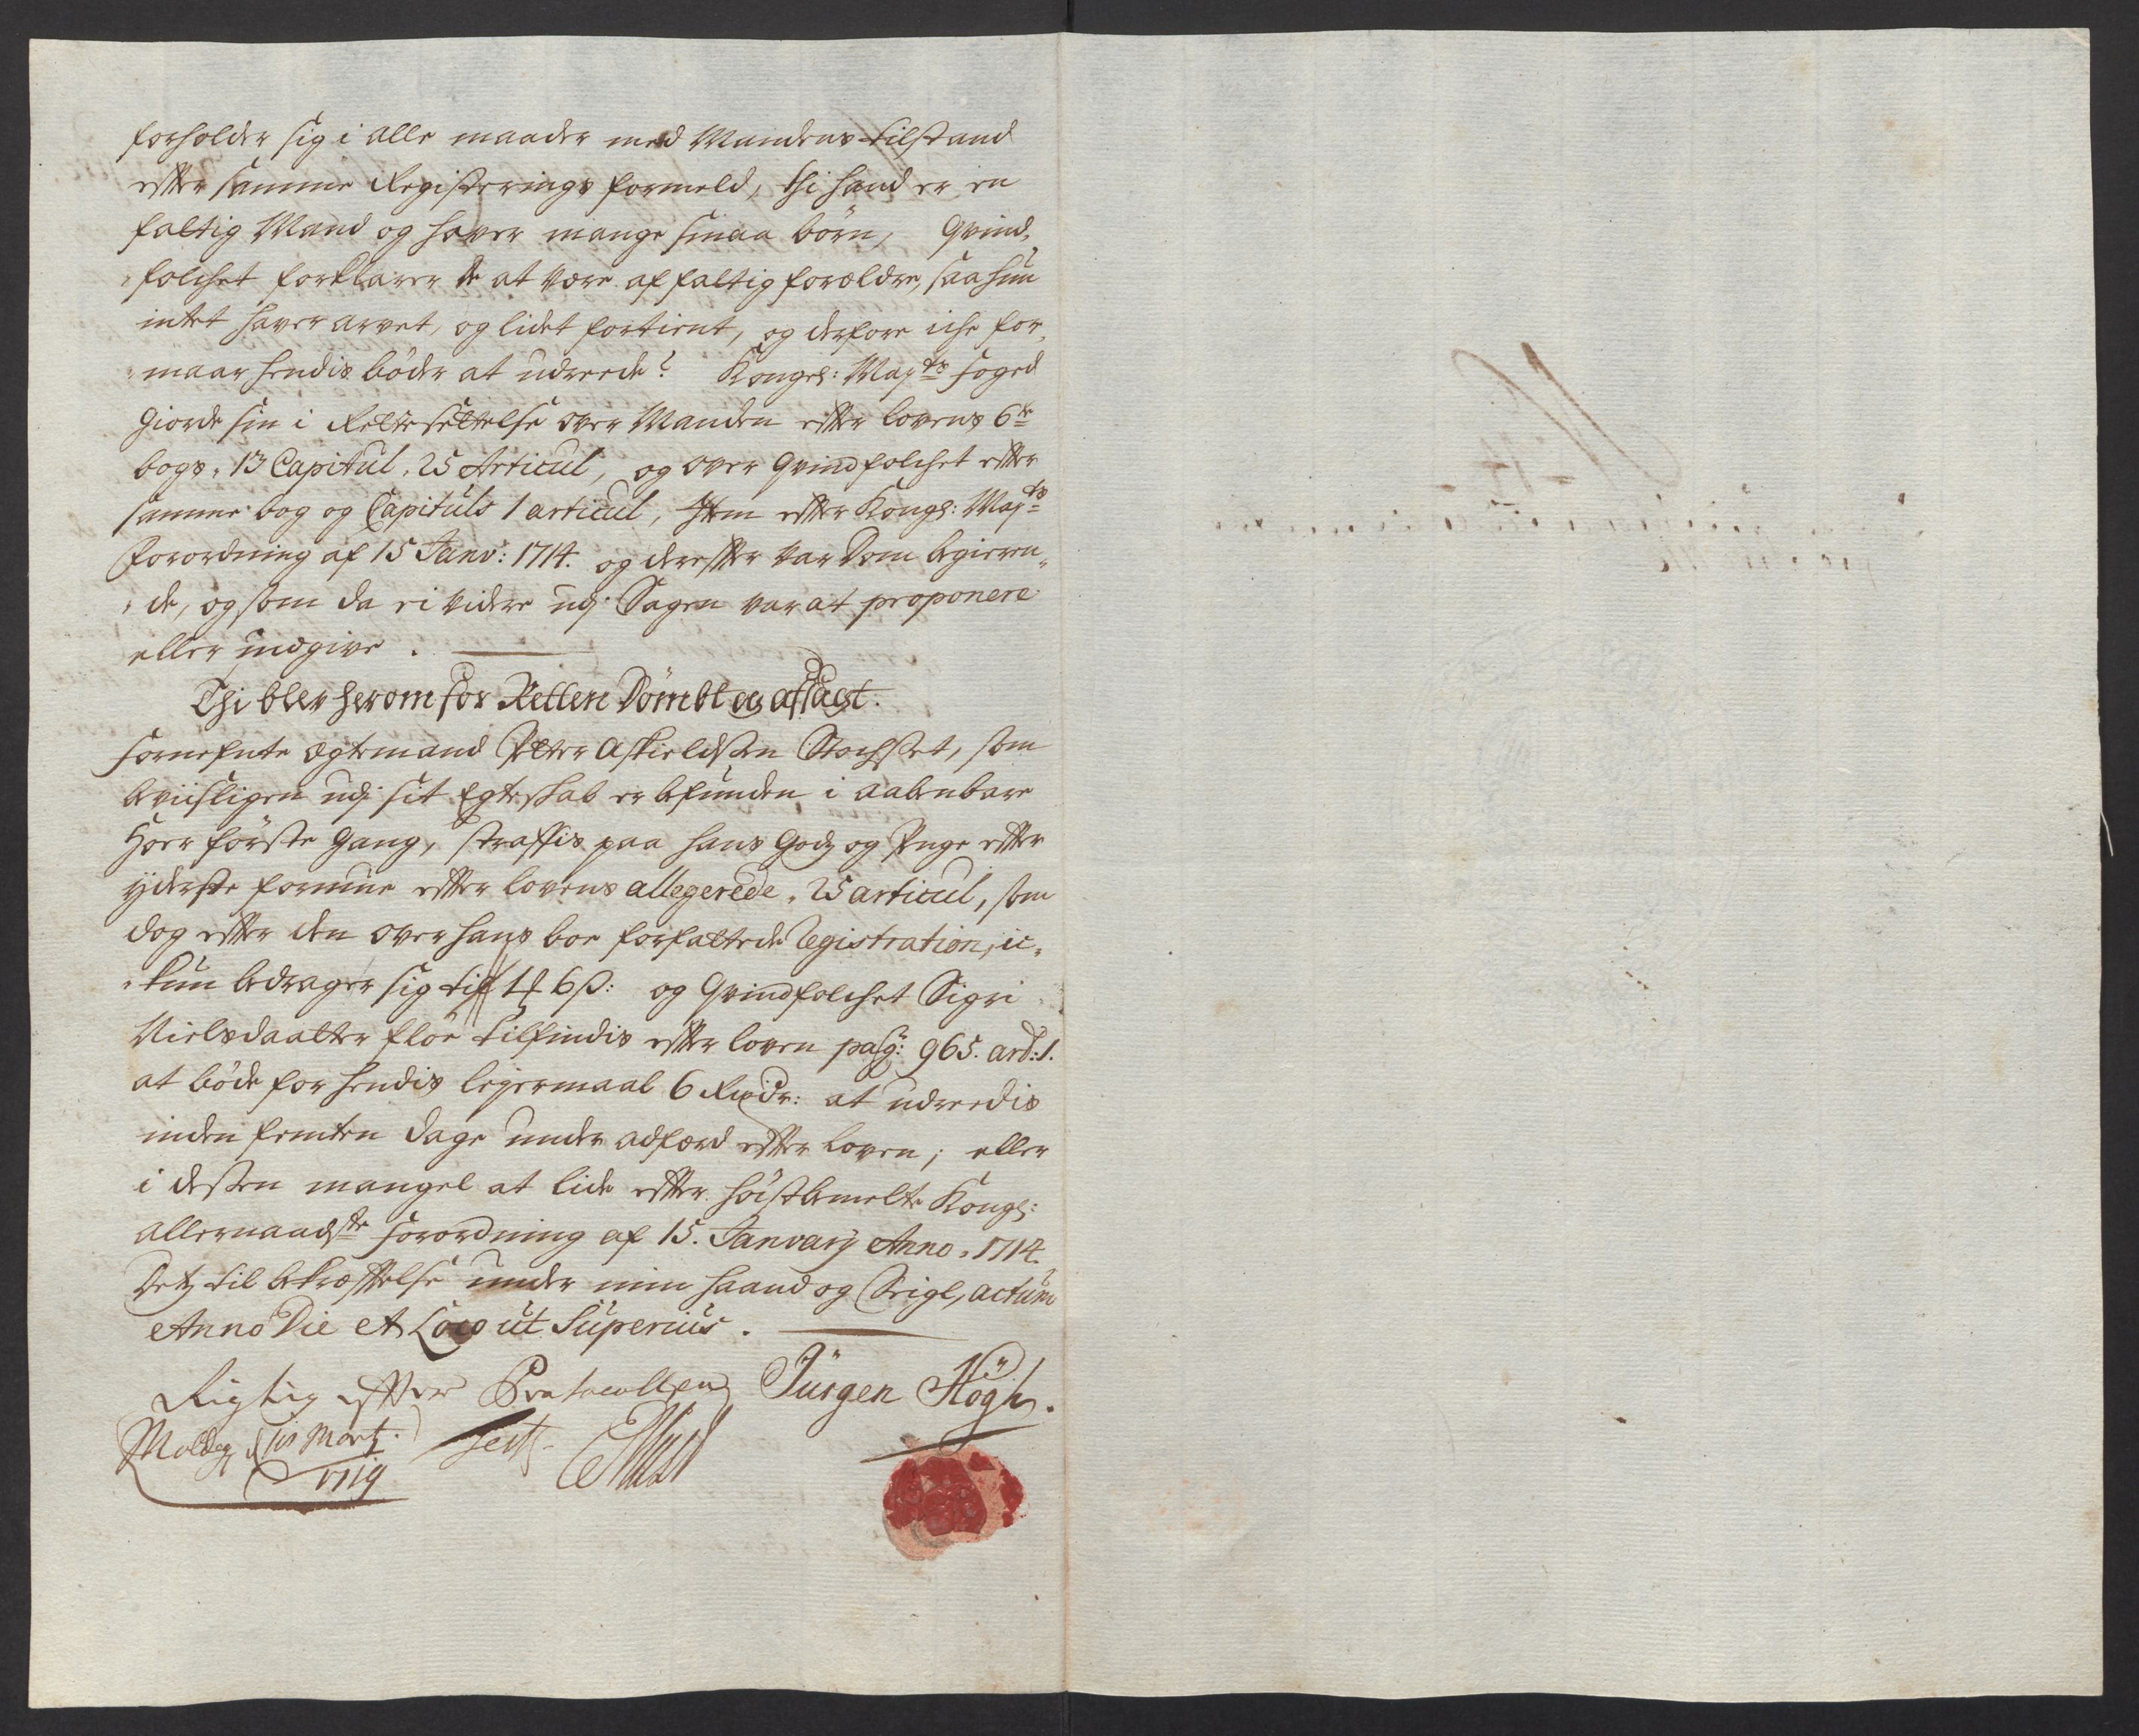 forholder sig i alle maader med Mandens tilstand
efter samme Registerings formeld, thi hand er en
fattig Mand og haver mange smaa börn, Qvind„
„folchet forklarer de at være af fattig forældre, saa hun
intet haver arvet, og lidet fortient, og derfore iche for„
„maar hendis böder at udreede? Kongel: Mayts foged
giorde sin i Rettesettelse over Manden efter lovens 6te
bogs, 13 Capitul, 25 Articul, og over Qvindfolchet efter
samme bog og Capituls 1 articul, Item efter Kongl: Mayts
Forordning af 15 Janv: 1714. og derefter var Dom begieren„
„de, og som da ei videre udj Sagen var at proponere
eller indgive.
Thi blev herom for Retten Dömbt og afsagt.
fornefnte ægtemand Petter Askieldsen Stochset, som
beviisligen udj sit Egteskab er befunden i aabenbare
Hoer förste Gang, straffis paa hans Godz og Penge efter
yderste formue efter lovens allegerede, 25 articul, som
dog efter den over hans boe forfattede Registration, ic„
„kun bedrager sig til 4 6 ß: og Qvindfolchet Sigri
Nielsdaatter Flöe tilfindis efter loven pag: 965. art: 1.
at böde for hendis lejermaal 6 Rixdr: at udreedis
inden femten dage under adfærd efter loven; eller
i desten mangel at lide efter höistbemelte Kongl:
allernaadste forordning af 15. Janvarij Anno, 1714.
Detz til bekræftelse under min haand og Seigl, actum
Anno Die et Loco ut Superius.
Rigtig efter Protocollen Jürgen Högh.
Molde, d: Mart.
1719